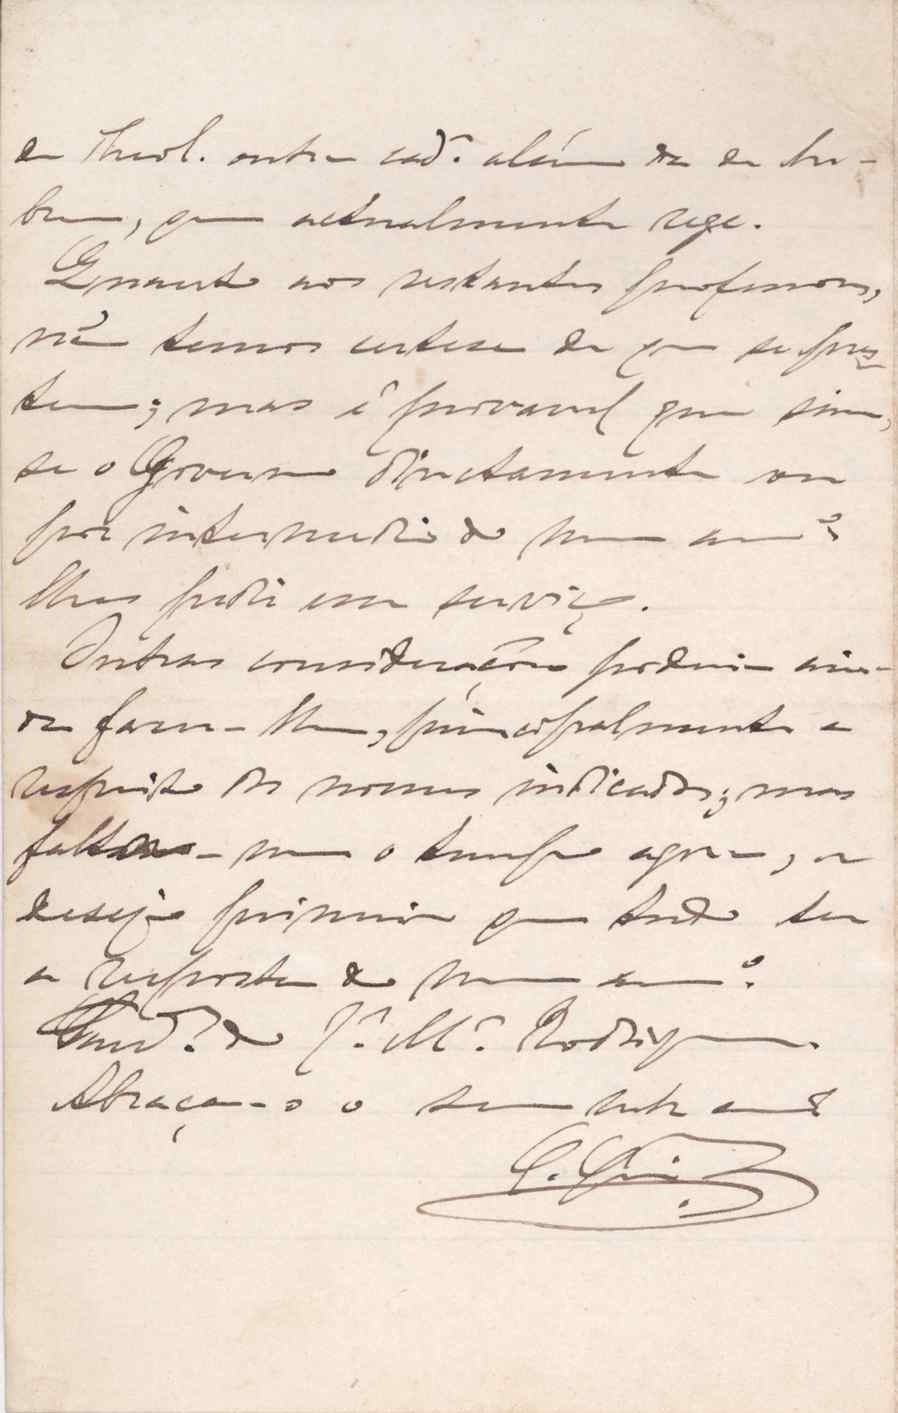 de Theol. outra cad.ª além da de he-
breu, que actualmente rege.
Quanto aos restantes professores,
não temos certesa de que se pres-
tem; mas é provavel que sim,
se o Governo directamente ou
por intermedio do meu am.º
lhes pedir esse serviço.
Outras considerações poderia ain-
da fazer-lhe, principalmente a
respeito dos nomes indicados; mas
falta-me o tempo agora, e
desejo primeiro que tudo ter
a resposta do meu am.º
Saud.es do J.é M.ª Rodrigues.
Abraça-o o seu am.º